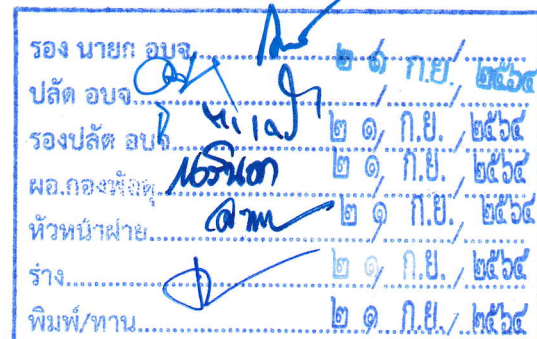 รอง นายก อบจ......./......./.......
๒ ๑ ก.ย. ๒๕๖๔
ปลัด อบจ......./......./.......
รองปลัด อบจ. ๒ ๑ ก.ย. ๒๕๖๔
ผอ.กองพัสดุ ๒ ๑ ก.ย. ๒๕๖๔
หัวหน้าฝ่าย ๒ ๑ ก.ย. ๒๕๖๔
ร่าง ๒ ๑ ก.ย. ๒๕๖๔
พิมพ์/ทาน ๒ ๑ ก.ย. ๒๕๖๔